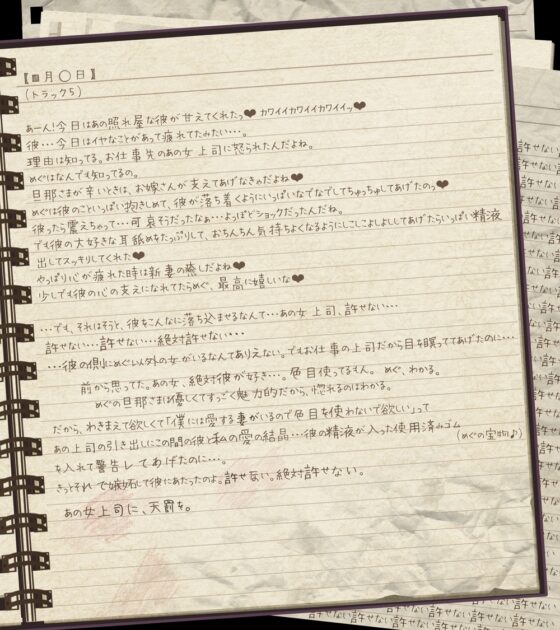 【■月◯日】
(トラック5)
あーん!今日はあの照れ屋な彼が甘えてくれたっ❤ カワイイカワイイカワイイッ❤
彼…今日はイヤなことがあって疲れてたみたい…。
理由は知ってる。お仕事先のあの女上司に怒られたんだよね。
めぐはなんでも知ってるの。
旦那さまが辛いときは、お嫁さんが支えてあげなきゃだよね❤
めぐは彼のこといっぱい抱きしめて、彼が落ち着くようにいっぱいなでなでしてちゅっちゅしてあげたのっ❤
彼ったら震えちゃって…可哀そうだったなぁ…よっぽどショックだったんだね。
でも彼の大好きな耳舐めをたっぷりして、おちんちん気持ちよくなるようにしこしこよしよししてあげたらいっぱい精液
出してスッキリしてくれた❤
やっぱり心が疲れた時は新妻の癒しだよね❤
少しでも彼の心の支えになれてたらめぐ、最高に嬉しいな❤
…でも、それはそうと、彼をこんなに落ち込ませるなんて…あの女上司、許せない…
許せない…許せない…絶対許せない…
…彼の側にめぐ以外の女がいるなんてありえない。でもお仕事の上司だから目を瞑っててあげたのに…
前から思ってた。あの女、絶対彼が好き…。色目使ってるもん。めぐ、わかる。
めぐの旦那さまは優しくてすっごく魅力的だから、惚れるのはわかる。
だから、わきまえて欲しくて「僕には愛する妻がいるので色目を使わないで欲しい」って
あの上司の引き出しにこの間の彼と私の愛の結晶…彼の精液が入った使用済みゴム
(めぐの宝物♪)
を入れて警告してあげたのに…。
きっとそれで嫉妬して彼にあたったのよ。許せない。絶対許せない。
あの女上司に、天罰を。
許せない許せない許せない許せない許せない